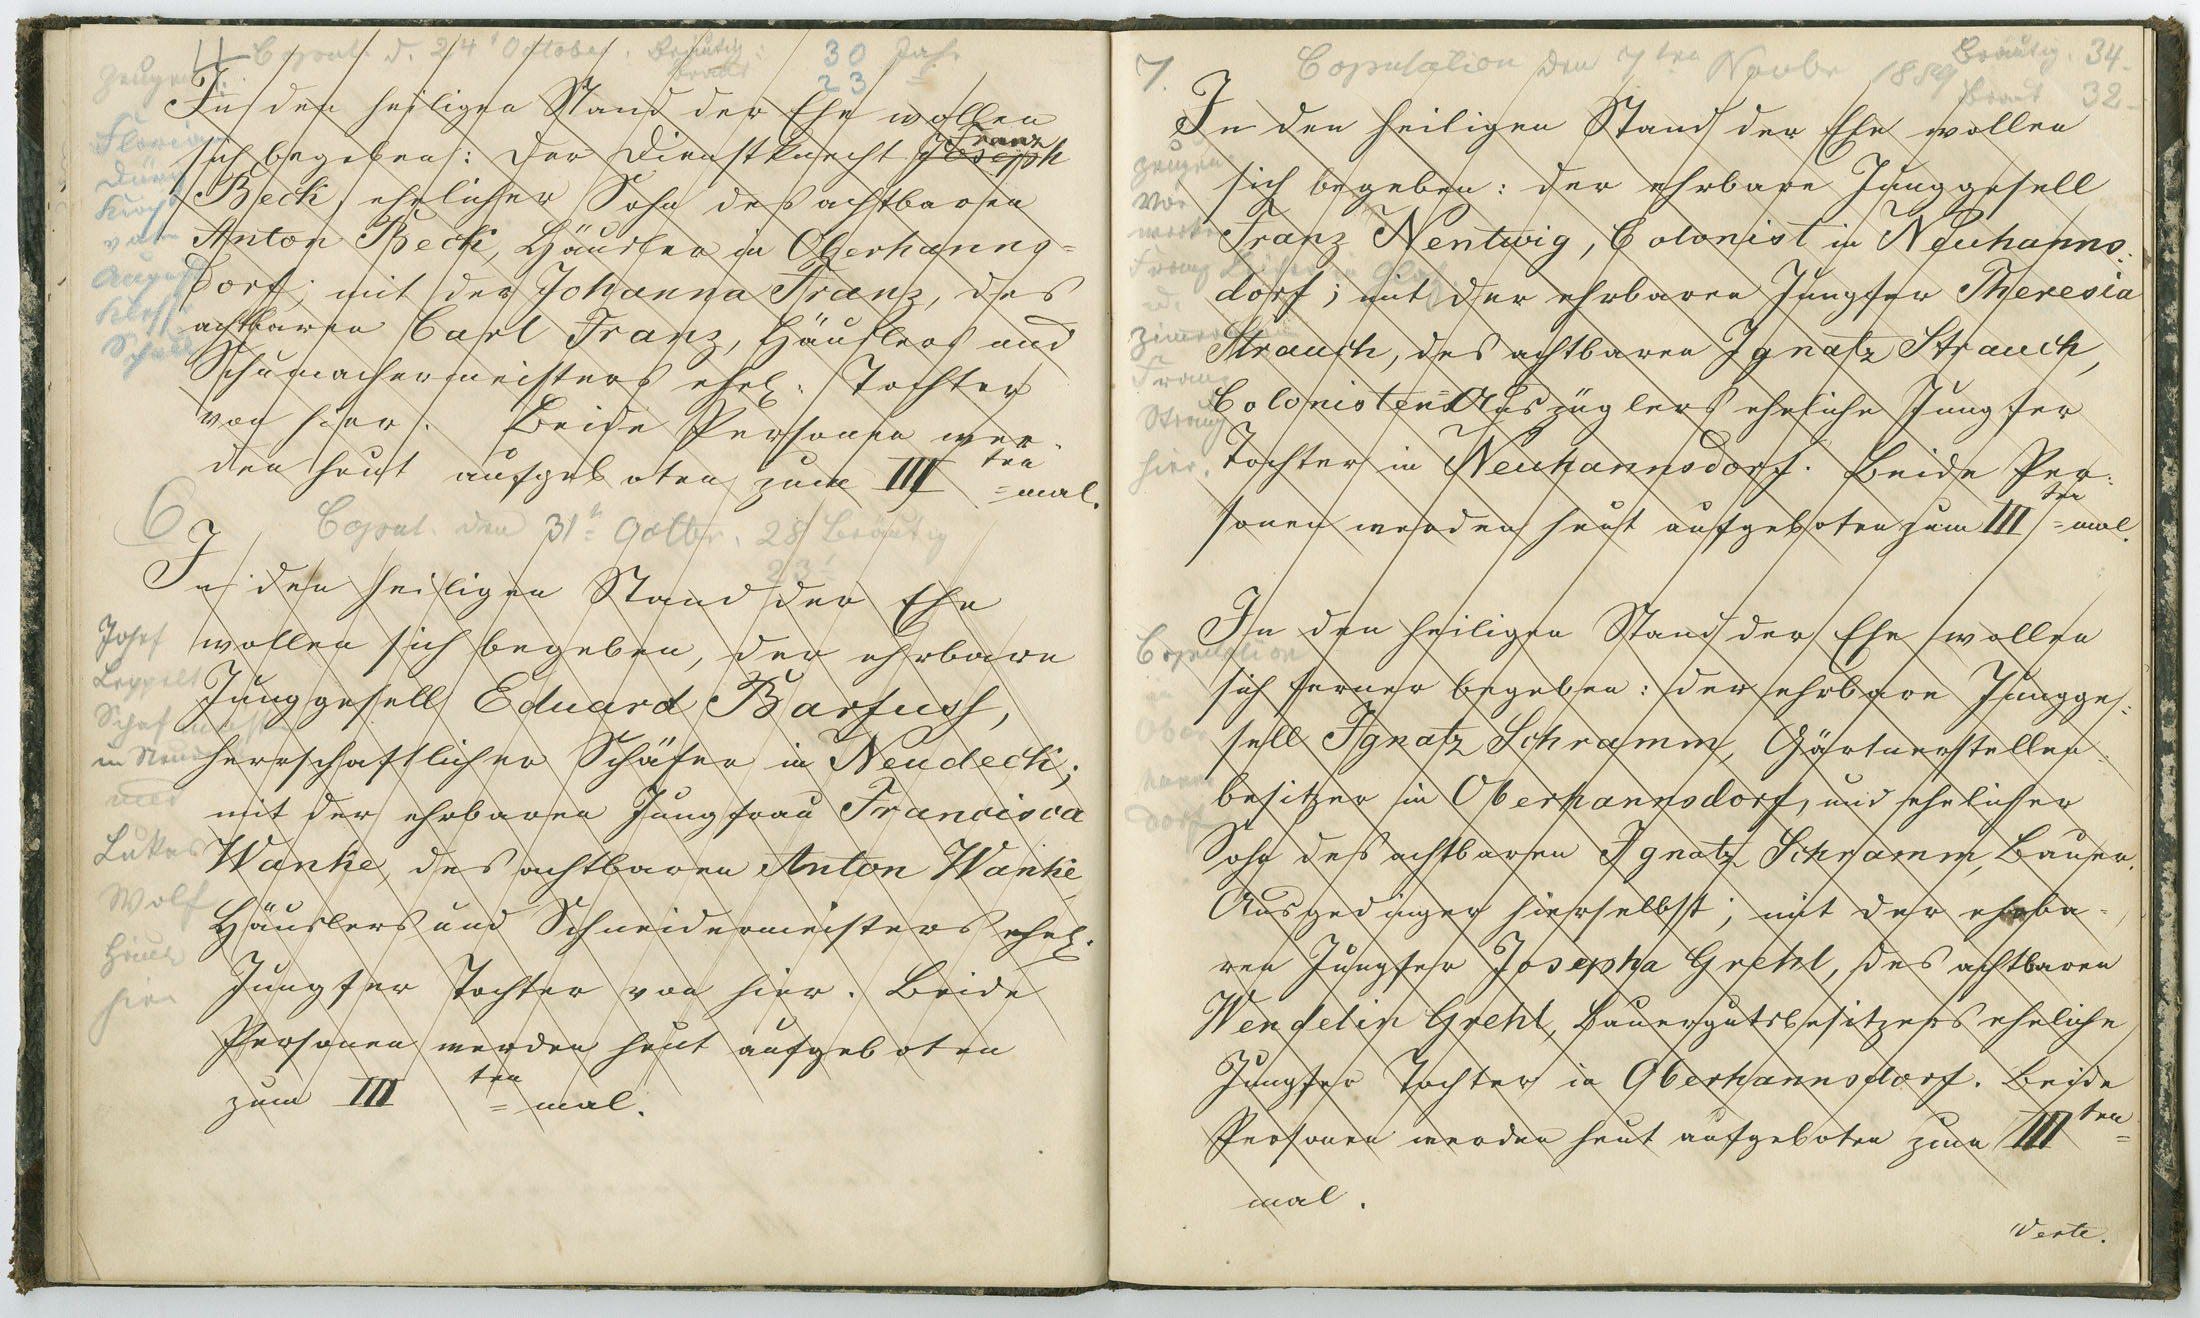 4 Copul. d. 24t October. Bräutig: 30 Jahr
Braut 23
Zeugen
In den heiligen Stand der Ehe wollen
sich begeben: der Dienstknecht Joseph Franz
Beck, ehelicher Sohn des achtbaren
Anton Beck, Häusler in Oberhanns=
dorf; mit der Johanna Franz, des
achtbaren Carl Franz, Häuslers und
Schumachermeisters ehel. Tochter
von hier. Beide Personen wer=
den heut aufgeboten zum III ten =mal.
Florian
August
6 Copul. den 31t Octbr. 28 Bräutig
23
In den heiligen Stand der Ehe
wollen sich begeben, der ehrbare
Junggesell Eduard Barfuss,
herrschaftlicher Schäfer in Neudeck;
mit der ehrbaren Jungfrau Francisca
Wanke, des achtbaren Anton Wanke
Häuslers und Schneidermeisters ehel.
Jungfer Tochter von hier. Beide
Personen werden heut aufgeboten
zum III ten =mal.
Josef
Leppelt
in
und
Lukas
Wolf
hier
7. Copulation den 7ten Novbr 1889 Bräutig. 34
Braut 32
In den heiligen Stand der Ehe wollen
sich begeben: der ehrbare Junggesell
Franz Nentwig, Colonist in Neuhanns=
dorf; mit der ehrbaren Jungfer Theresia
Strauch, des achtbaren Ignatz Strauch,
Colonisten=Auszüglers eheliche Jungfer
Tochter in Neuhannsdorf. Beide Per=
sonen werden heut aufgeboten zum III ten =mal.
Zeugen
Vor
werks
Franz
Franz
hier.
In den heiligen Stand der Ehe wollen
sich ferner begeben: der ehrbare Jungge=
sell Ignatz Schramm, Gärtnerstellen=
besitzer in Oberhannsdorf, und ehelicher
Sohn des achtbaren Ignatz Schramm, Bauer=
Ausgedinger hierselbst; mit der ehrba=
ren Jungfer Josepha Grehl, des achtbaren
Wendelin Grehl, Bauergutsbesitzers eheliche
Jungfer Tochter in Oberhannsdorf. Beide
Personen werden heut aufgeboten zum III ten=
mal.
Copulation
in
Ober
hanns
dorf
Verte.